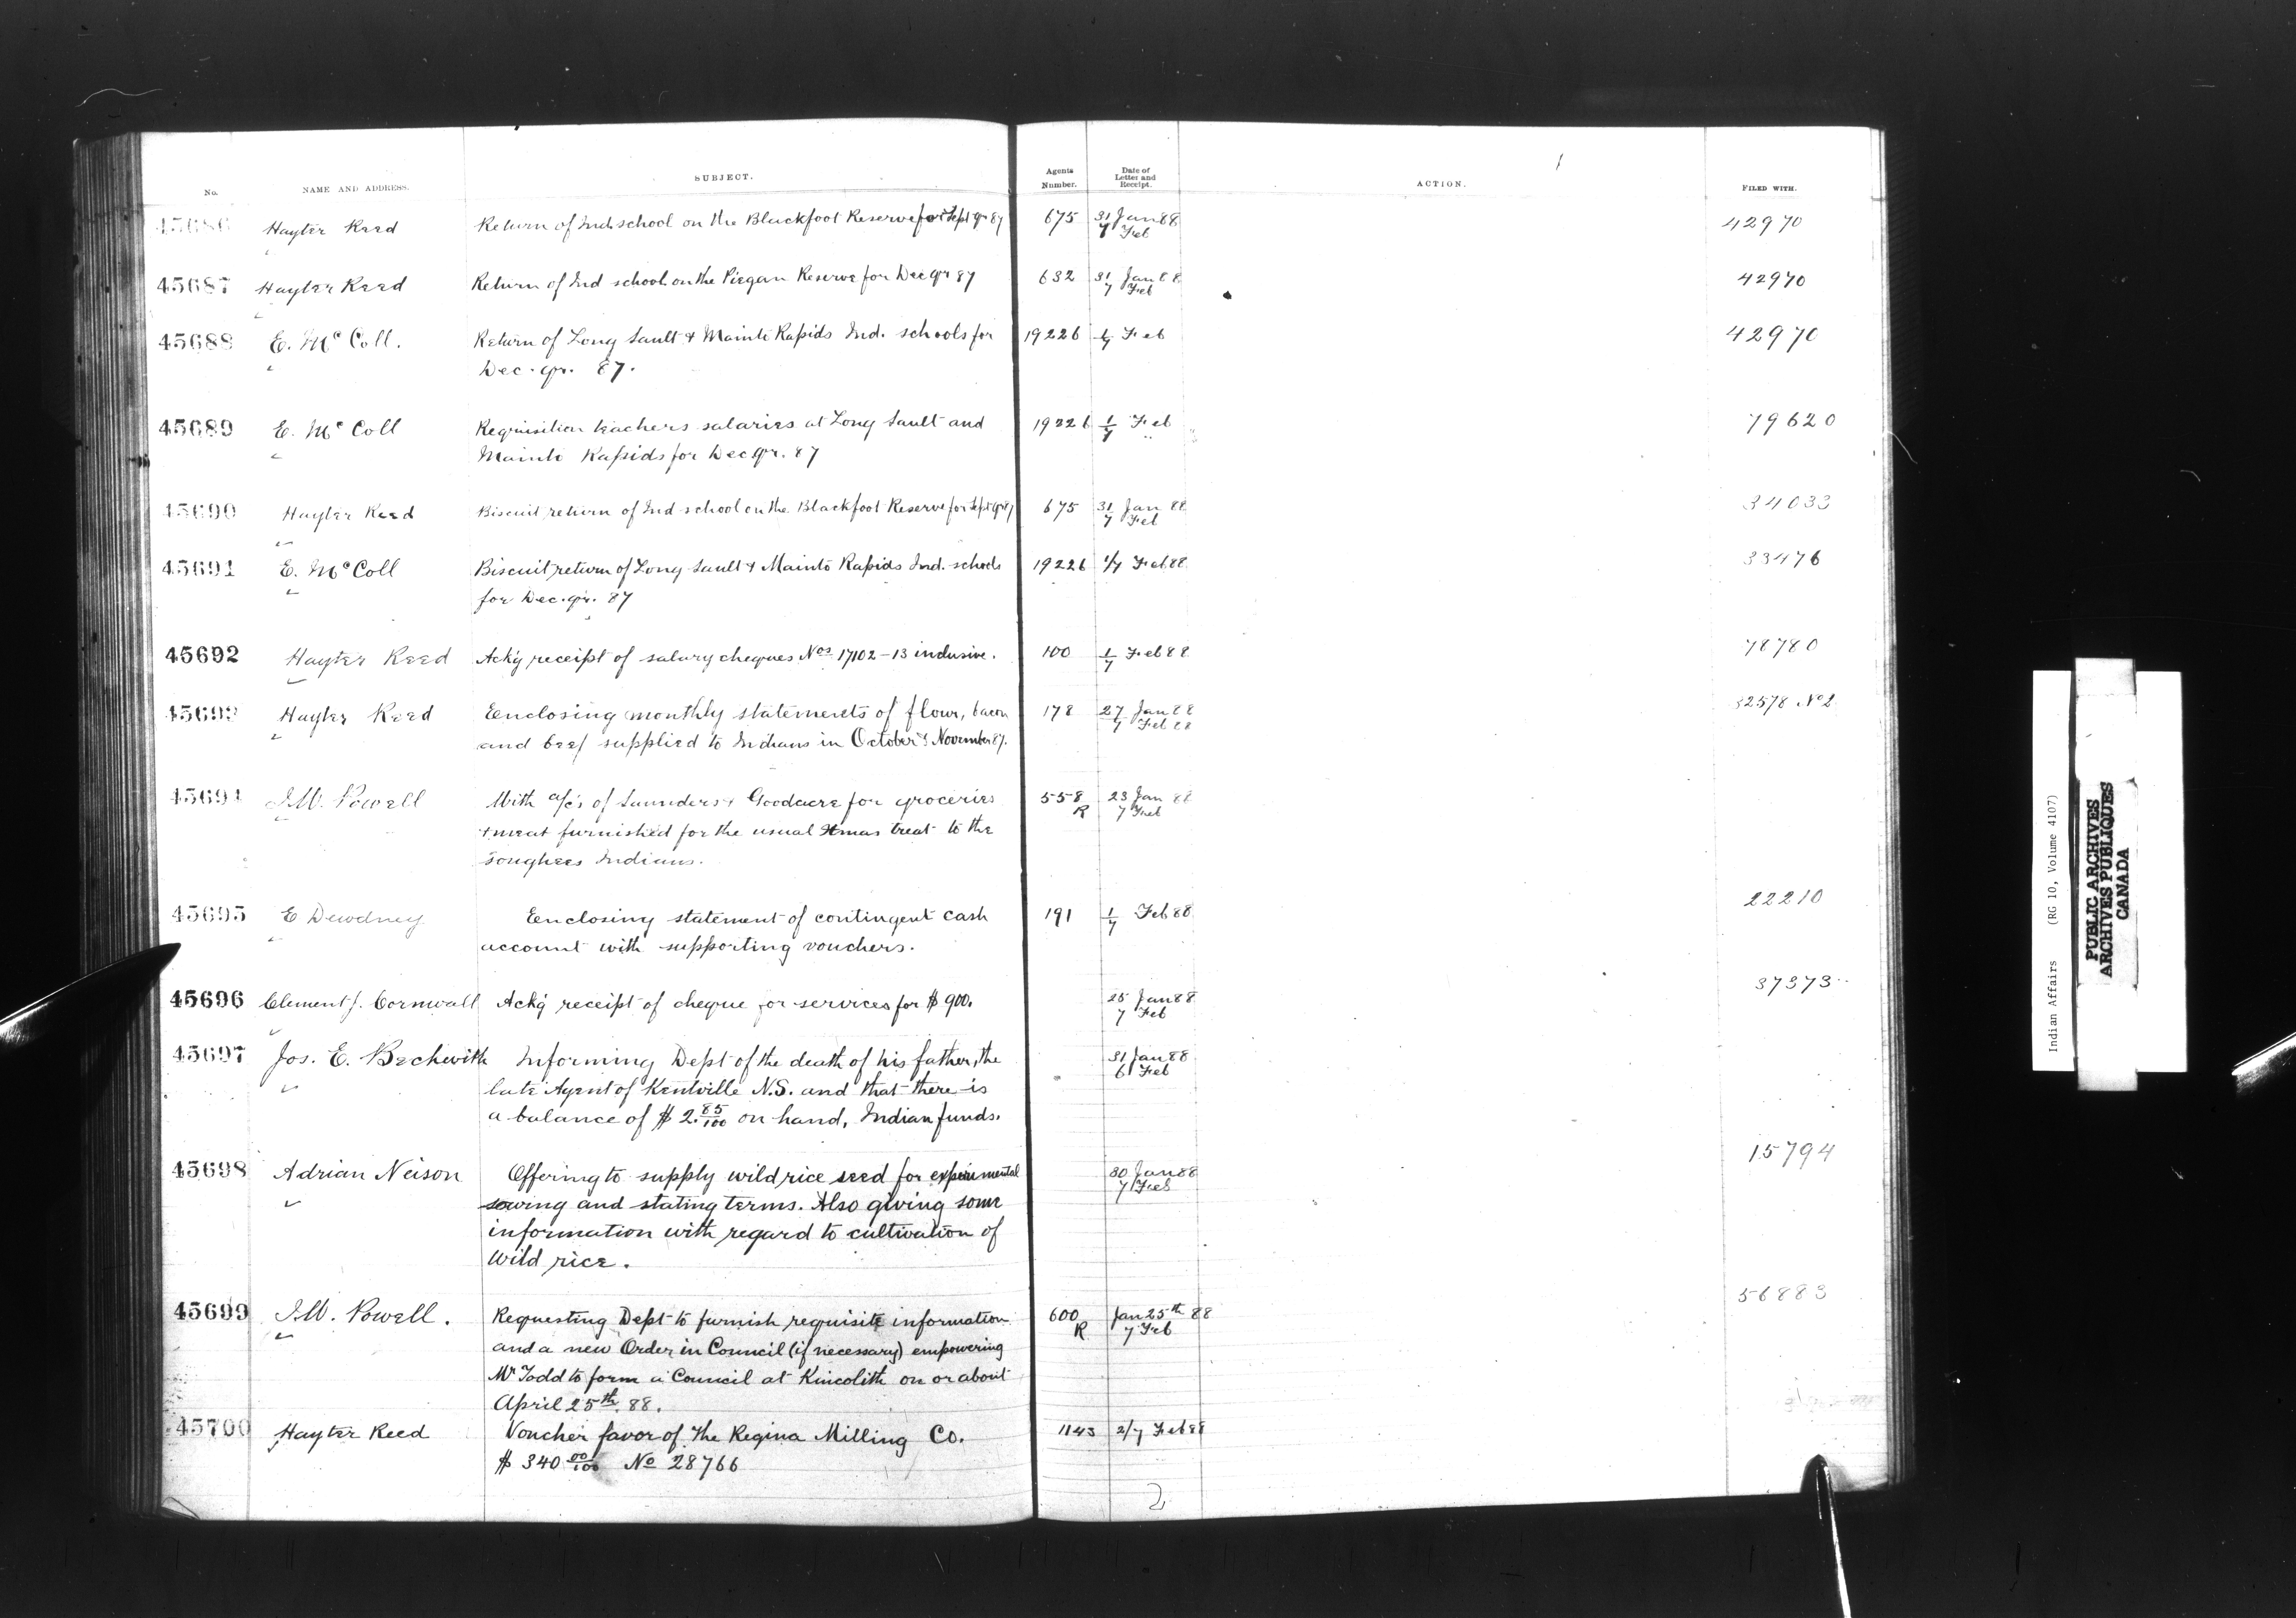 No. NAME AND ADDRESS. SUBJECT. Agents Number. Date of Letter and Receipt. ACTION. FILED WITH.
45686 Hayter Reed Return of Ind. school on the Blackfoot Reserve for Sept qr 87 675 31 Jan 88 42970
7 Feb
45687 Hayter Reed Return of Ind school on the Piegan Reserve for Dec qr 87 632 31 Jan 88 42970
7 Feb
45688 E. McColl. Return of Long Sault & Mainto Rapids Ind. schools for 19226 1/7 Feb 42970
Dec. qr. 87.
45689 E. McColl Requisition teachers salaries at Long Sault and 19226 1/7 Feb 79620
Mainto Rapids for Dec qr. 87
45690 Hayter Reed Biscuit return of Ind school on the Blackfoot Reserve for Sept qr 87 675 31 Jan 88 34033
7 Feb
45691 E. McColl Biscuit return of Long Sault & Mainto Rapids Ind. schools 19226 1/7 Feb 88 33476
for Dec. qr. 87
45692 Hayter Reed Ack'g receipt of salary cheques Nos 17102-13 inclusive. 100 1/7 Feb 88 78780
45693 Hayter Reed Eenclosing monthly statements of flour, bacon 178 27 Jan 88 32578 No 2
and beef supplied to Indians in October & November 87. 7 Feb 88
45694 I.W. Powell With a/c's of Saunders & Goodacre for groceries 558 R 23 Jan 88
& meat furnished for the usual Xmas treat to the 7 Feb
Songhees Indians.
45695 E Dewdney Eenclosing statement of contingent cash 191 1/7 Feb 88 22210
account with supporting vouchers.
45696 Clement J. Cornwall Ack'g receipt of cheque for services for $900. 25 Jan 88 37373
7 Feb
45697 Jos. E. Beckwith Informing Dept of the death of his father, the 31 Jan 88
late Agent of Kentville N.S. and that there is 6 Feb
a balance of $2.85/100 on hand, Indian funds.
45698 Adrian Neison Offering to supply wild rice seed for experimental 30 Jan 88 15794
sowing and stating terms. Also giving some 7 Feb
information with regard to cultivation of
wild rice.
45699 I.W. Powell. Requesting Dept to furnish requisite information 600 R Jan 25th 88 56883
and a new Order in Council (if necessary) empowering 7 Feb
Mr Todd to form a Council at Kincolith on or about
April 25th. 88.
45700 Hayter Reed Voucher favor of The Regina Milling Co. 1143 2/7 Feb 88
$340 00/100 No 28766
2
Indian Affairs (RG 10, Volume 4107)
PUBLIC ARCHIVES
ARCHIVES PUBLIQUES
CANADA